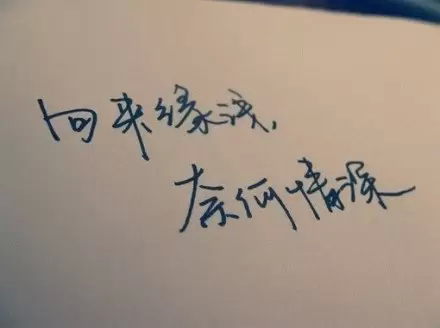 向来缘浅，
奈何情深